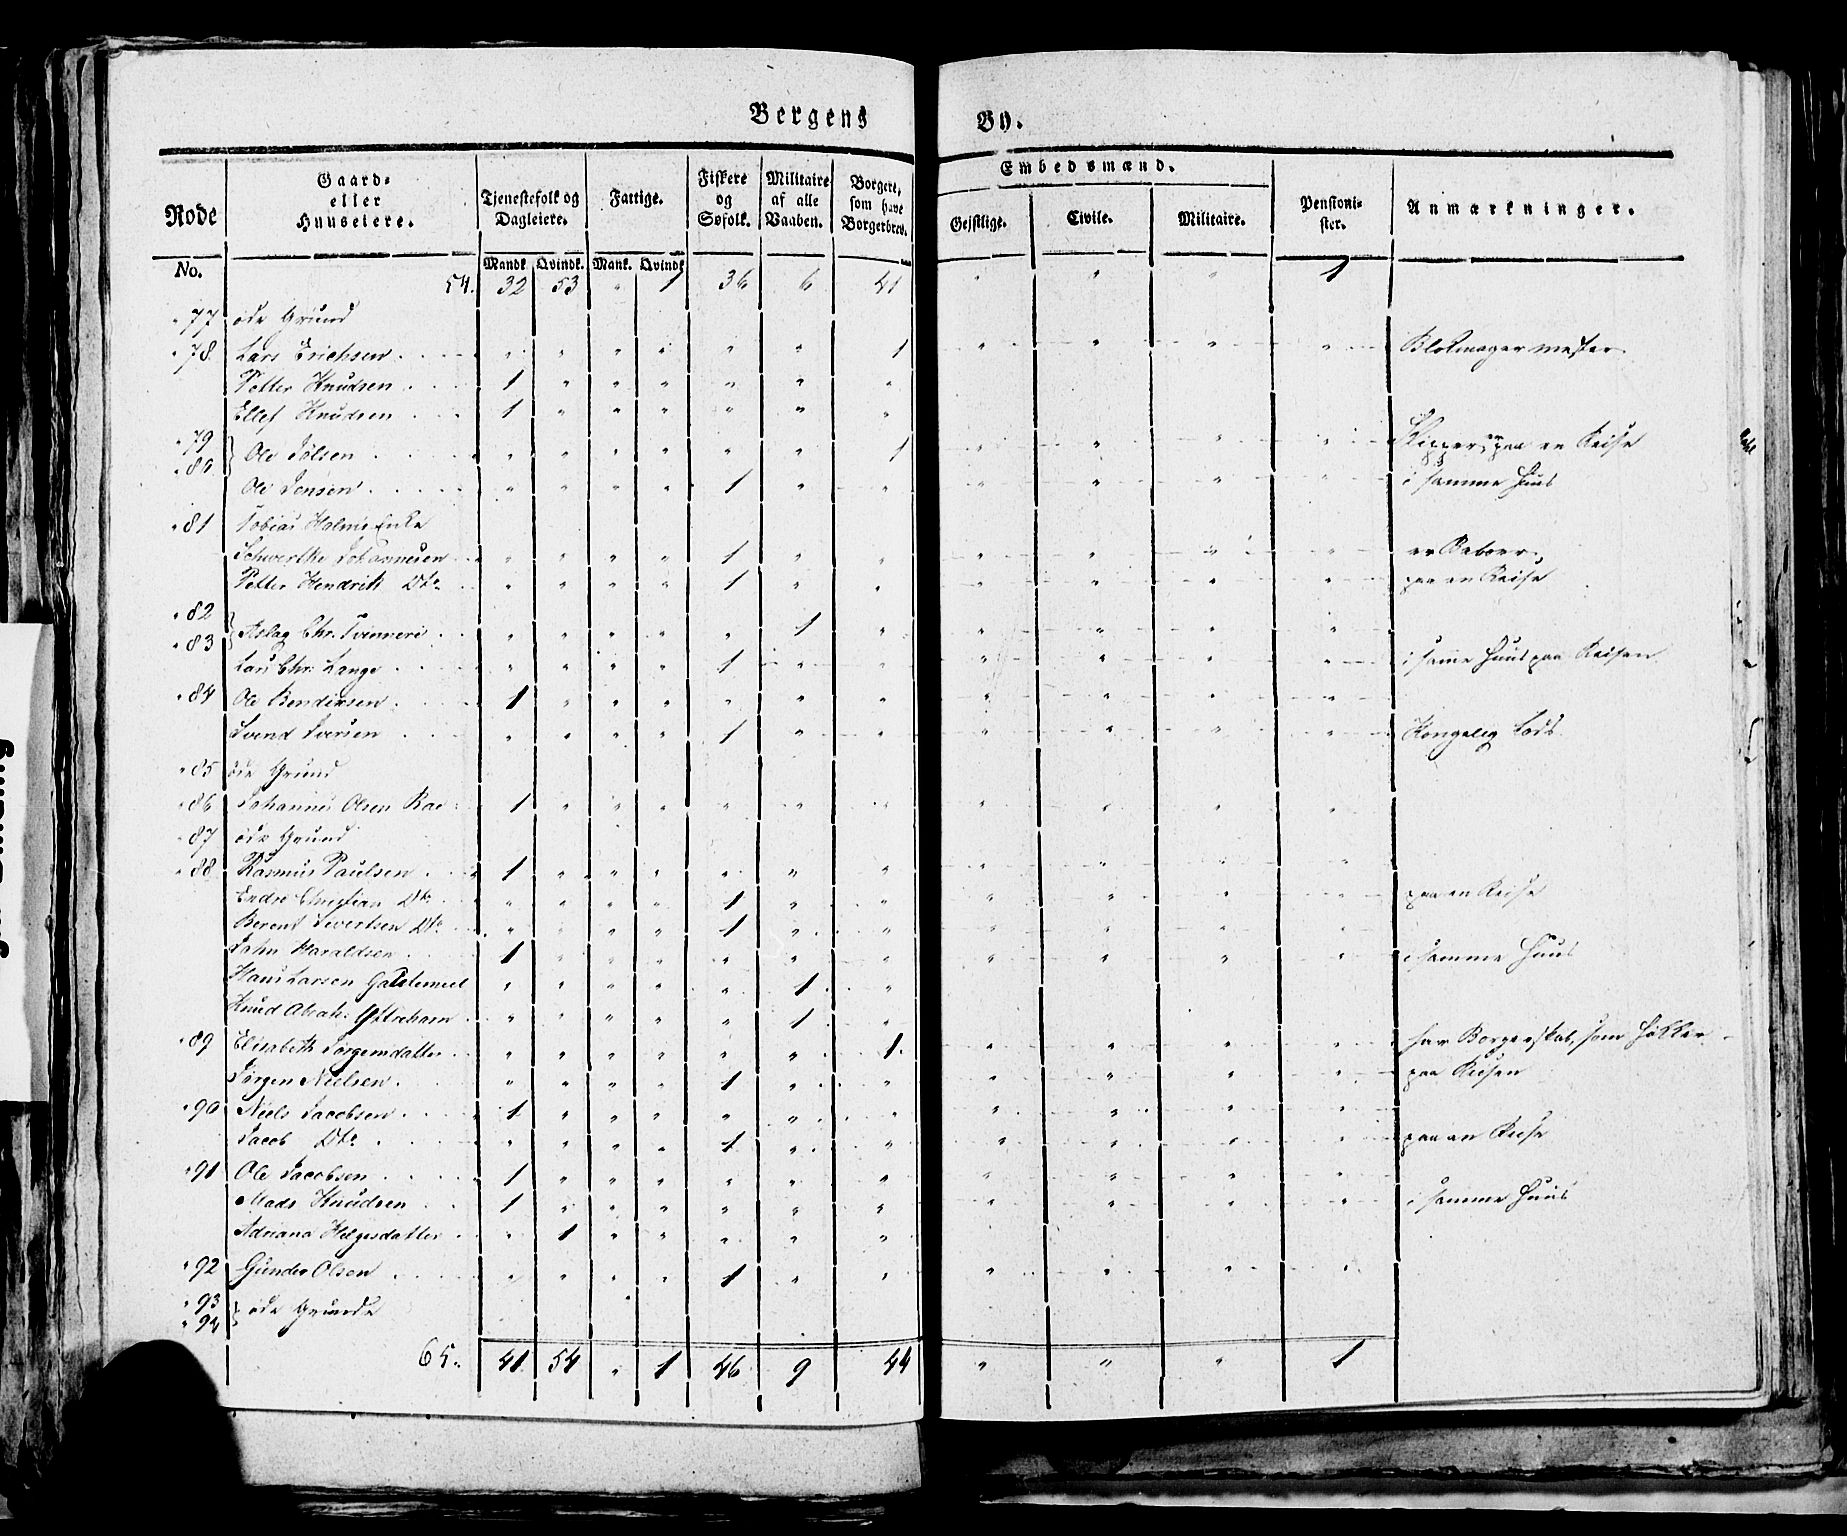 Bergens By.
Rode No. Gaard- eller Huuseiere. Tjenestefolk og Dagleiere. Fattige. Fiskere og Søfolk. Militaire af alle Vaaben. Borgere, som have Borgerbrev. Embedsmænd. Pensionister. Anmærkninger.
Mandk. Qvindk. Mank. Qvindk. Gejstlige. Civile. Militaire.
54. 32 53 " 1 36 6 41 " " " 1
" 77 öde Grund
" 78 Lars Erichsen . . . " " " " " " 1 " " " " Blokmager mester.
Petter Knudsen . . . 1 " " " " " "
Ellef Knudsen . . . 1 " " " " " "
" 79
" 80 } Ole Jölsen . . . " " " " " " 1 " " " " Skipper, er paa en Reise
Ole Jensen . . . " " " " 1 " " " " " " i samme Huus
" 81 Tobias Holms Enke
Johannesen . . . " " " " 1 " " " " " "
Petter Hendrik Dto " " " " 1 " " " " " " paa en Reise
" 82
" 83 } Aslag Chr. . . . " " " " " 1 " " " " "
Lars Chr. Lange . . . " " " " 1 " " " " " " i samme Huus paa Reisen
" 84 Ole Bendixsen . . . 1 " " " " " " " " " "
Svend Iversen . . . " " " " 1 " " " " " " Kongelig Lods
" 85 öde Grund
" 86 Johannes Olsen Roe 1 " " " " " " " " " "
" 87 öde Grund
" 88 Rasmus Paulsen . . . 1 " " " " " " " " " "
Endre Christian Dto " " " " 1 " " " " " " paa en Reise
Berent Sivertsen Dto " " " " 1 " " " " " "
John Haraldsen . . . 1 " " " " " " " " " " i samme Huus
Hans Larsen " " " " " 1 "
Knud Abrah. . " " " " " 1 "
" 89 Elisabeth Jørgensdatter . . " " " " " " 1. " " " " har Borgerskab, som Høkker
Jørgen Nielsen . . . " " " " 1 " " " " " " paa Reisen
" 90 Niels Jacobsen . . . 1 " " " " " " " " " "
Jacob Dto . . . " " " " 1 " " " " " " paa en Reise
" 91 Ole Jacobsen . . . 1 " " " " " " " " " "
Mads Knudsen . . 1 " " " " " " " " " " i samme Huus
Adriana Helgesdatter . . " 1 " " " " "
" 92 Gunder Olsen . . . " " " " 1 " " " " " "
" 93
" 94 } öde Grunde
65. 41 54 " 1 46 9 44 " " " 1